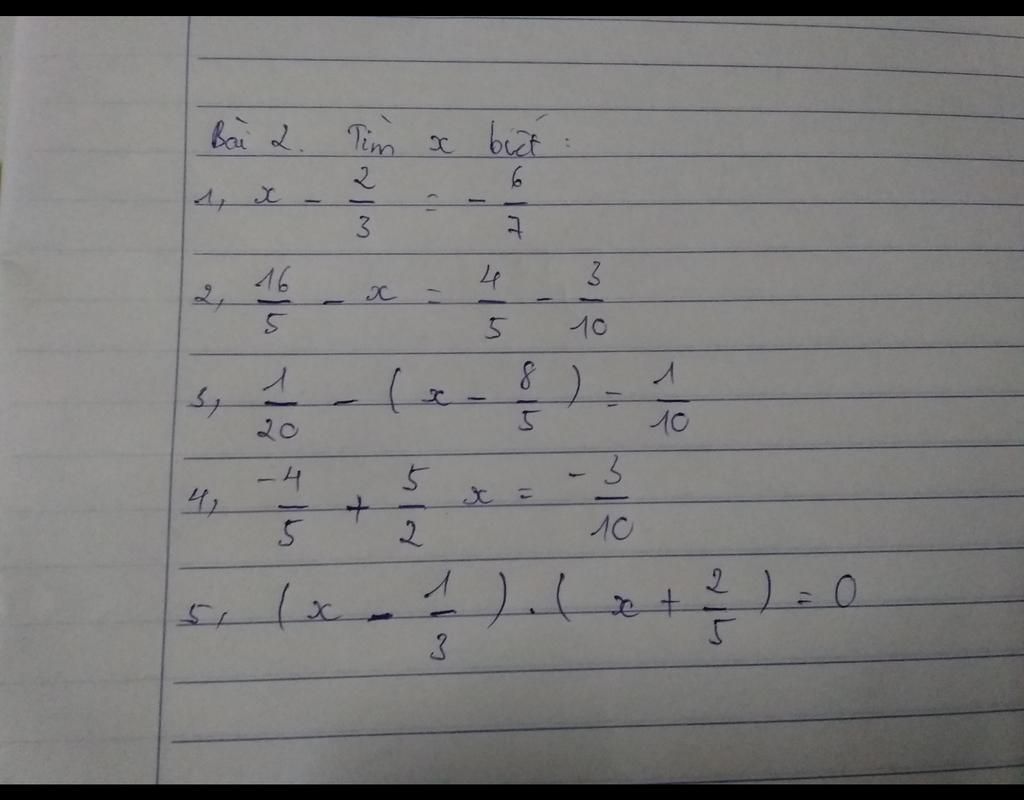 Bài 2. Tìm x biết :
1, x - 2/3 = - 6/7
2, 16/5 - x = 4/5 - 3/10
3, 1/20 - ( x - 8/5 ) = 1/10
4, -4/5 + 5/2 x = -3/10
5, ( x - 1/3 ) . ( x + 2/5 ) = 0